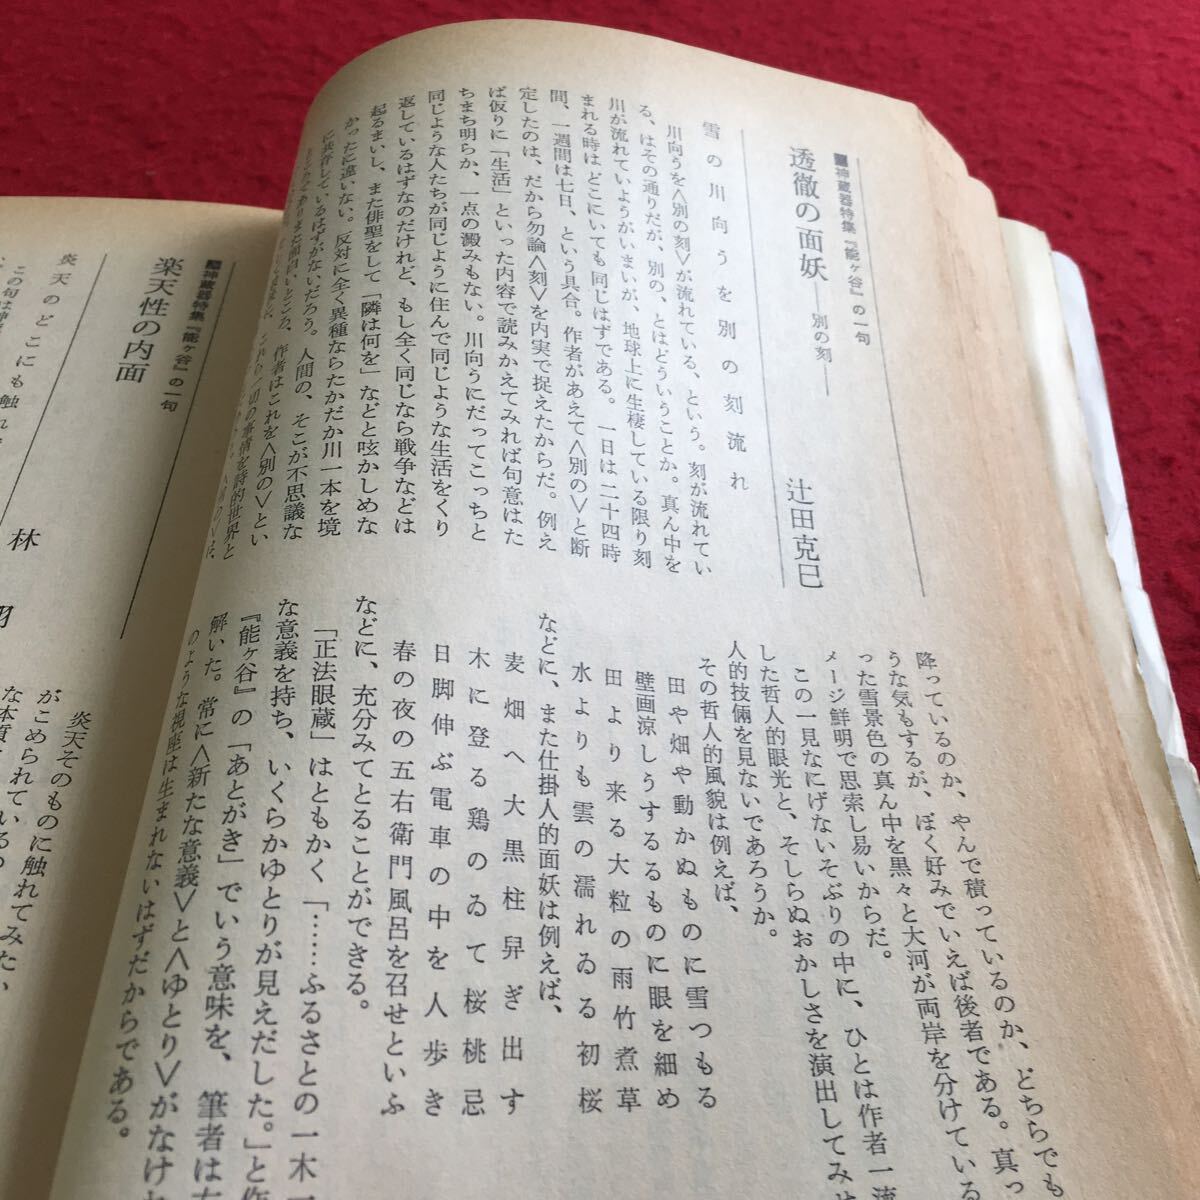 神蔵器特集『能ヶ谷』の一句
透徹の面妖――別の刻――
辻田克巳
雪の川向うを別の刻流れ
川向うを〈別の刻〉が流れている、という。刻が流れてい
る、はその通りだが、別の、とはどういうことか。真ん中を
川が流れていようがいまいが、地球上に生棲している限り刻
まれる時はどこにいても同じはずである。一日は二十四時
間、一週間は七日、という具合。作者があえて〈別の〉と断
定したのは、だから勿論〈刻〉を内実で捉えたからだ。例え
ば仮りに「生活」といった内容で読みかえてみれば句意はた
ちまち明らか、一点の澱みもない。川向うにだってこっちと
同じような人たちが同じように住んで同じような生活をくり
返しているはずなのだけれど、もし全く同じなら戦争などは
起るまいし、また俳聖をして「隣は何を」などと呟かしめな
かったに違いない。反対に全く異種ならたかだか川一本を境
に共存しているはずがないだろう。人間の、そこが不思議な
ところでありまた面白いところ、作者はこれを〈別の〉とい
降っているのか、やんで積っているのか、どちらでも
うな気もするが、ぼく好みでいえば後者である。真っ
った雪景色の真ん中を黒々と大河が両岸を分けている
メージ鮮明で思索し易いからだ。
この一見なにげないそぶりの中に、ひとは作者一流
した哲人的眼光と、そしらぬおかしさを演出してみせ
人的技倆を見ないであろうか。
その哲人的風貌は例えば、
田や畑や動かぬものに雪つもる
壁画涼しうするものに眼を細め
田より来る大粒の雨竹煮草
水よりも雲の濡れゐる初桜
などに、また仕掛人的面妖は例えば、
麦畑へ大黒柱舁ぎ出す
木に登る鶏のゐて桜桃忌
日脚伸ぶ電車の中を人歩き
春の夜の五右衛門風呂を召せといふ
などに、充分みてとることができる。
「正法眼蔵」はともかく「……ふるさとの一木一
な意義を持ち、いくらかゆとりが見えだした。」と作
『能ヶ谷』の「あとがき」でいう意味を、筆者は右
解いた。常に〈新たな意義〉と〈ゆとり〉がなけれ
のような視座は生まれないはずだからである。
神蔵器特集『能ヶ谷』の一句
楽天性の内面
林
翔
炎天のどこにも触れ
この句は
炎天そのものに触れてみた、
がこめられている
な本質